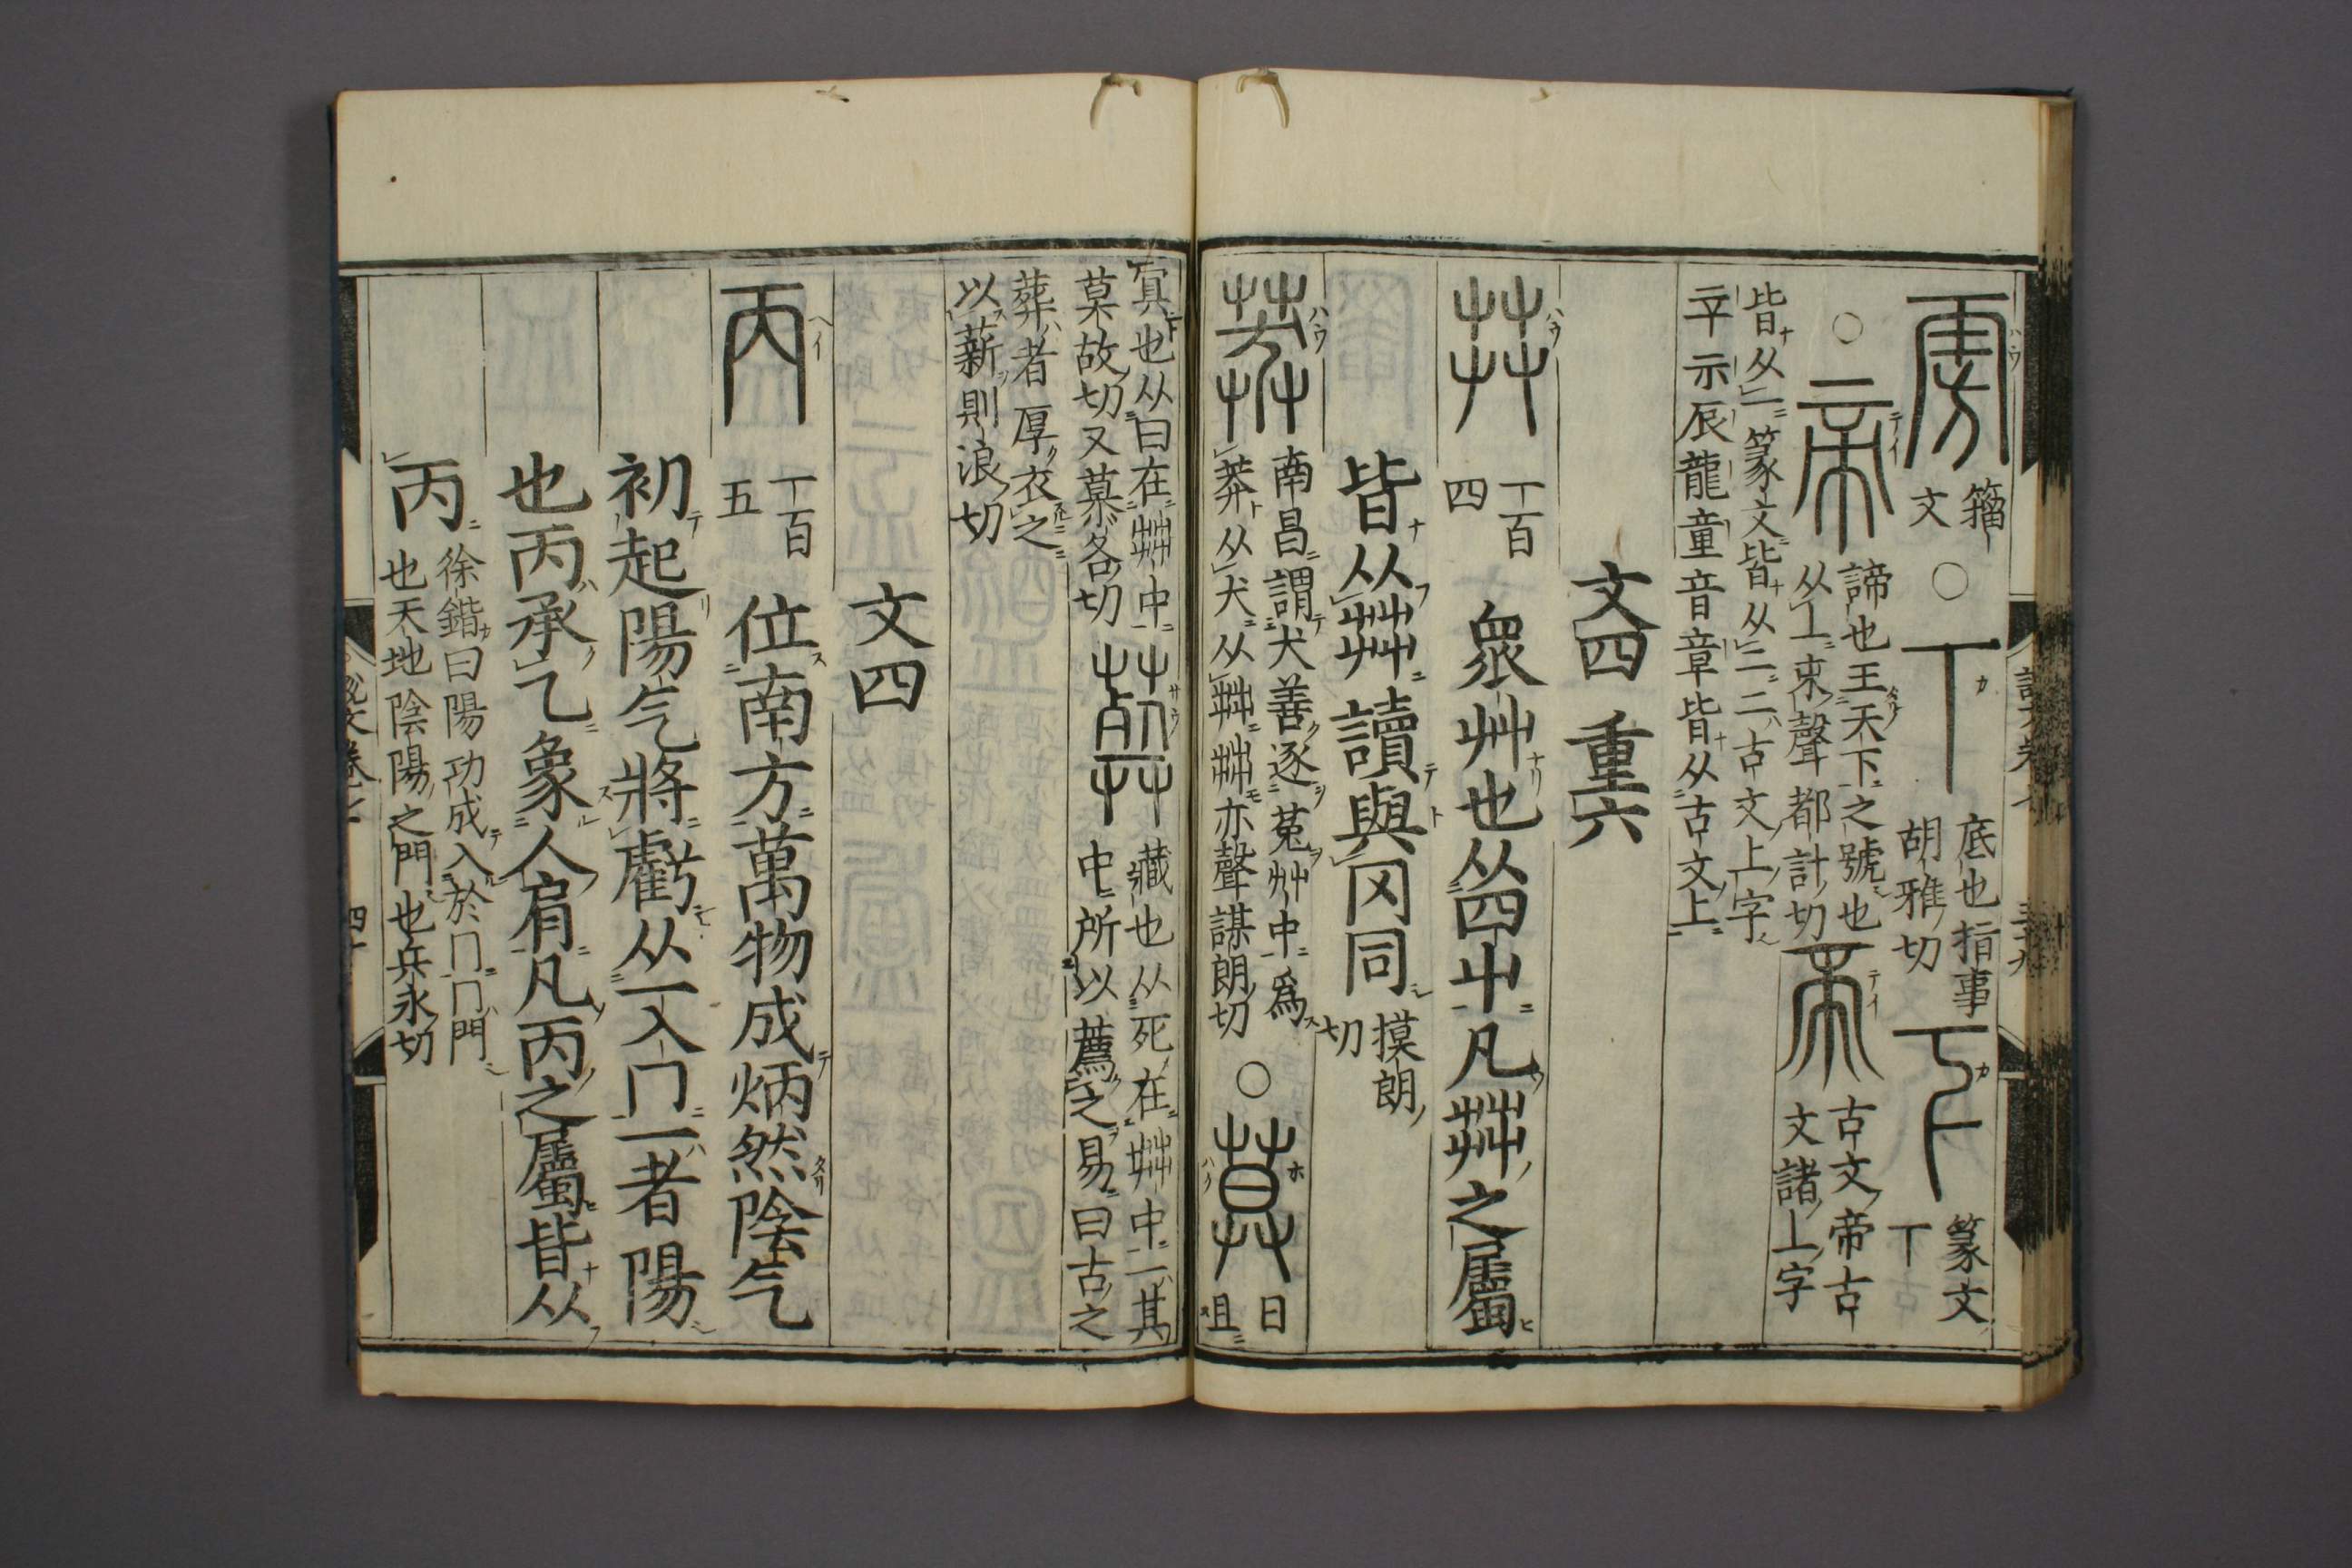 㫄籒文○丅底也指事胡雅切下篆文丅
○帝諦也王天下之號也从丄朿聲都計切帝古文帝古文諸丄字
皆从一篆文皆从二二古文上字
䇂示辰龍童音章皆从古文上
文四 重六
茻一百四 眾艸也从四屮凡茻之屬
皆从茻讀與冈同摸朗切
莽南昌謂犬善逐菟艸中爲莽从犬从茻茻亦聲謀朗切○莫日且
冥也从日在茻中莫故切又慕各切葬藏也从死在茻中一其中所以薦之易曰古之
葬者厚衣之以薪則浪切
文四
丙一百五 位南方萬物成炳然陰气
初起陽气將虧从一入冂一者陽
也丙承乙象人肩凡丙之屬皆从
丙徐鍇曰陽功成入於冂冂門也天地陰陽之門也兵永切
說文卷七 四十